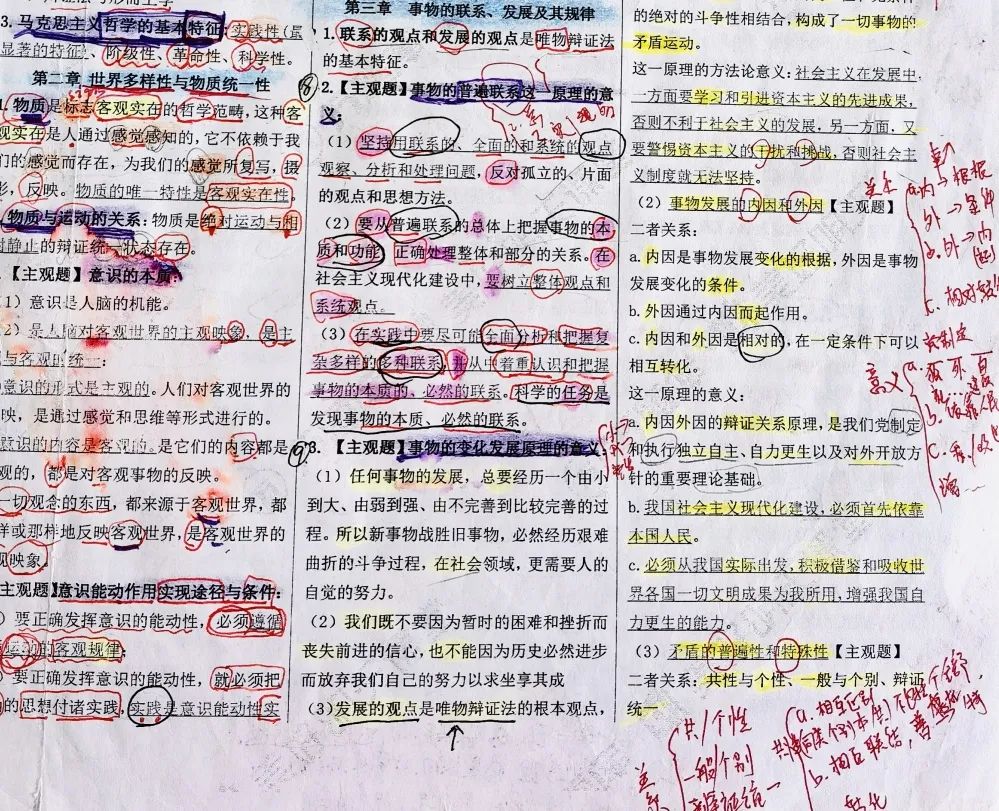 3. 马克思主义哲学的基本特征：实践性(最
显著的特征、阶级性、革命性、科学性。
第二章 世界多样性与物质统一性
1. 物质是标志客观实在的哲学范畴，这种客
观实在是人通过感觉感知的，它不依赖于我
们的感觉而存在，为我们的感觉所复写，摄
影，反映。物质的唯一特性是客观实在性。
物质与运动的关系：物质是绝对运动与相
对静止的辩证统一状态存在。
【主观题】意识的本质：
（1）意识是人脑的机能。
2）是人脑对客观世界的主观映象，是主
与客观的统一：
意识的形式是主观的。人们对客观世界的
映，是通过感觉和思维等形式进行的。
意识的内容是客观的。是它们的内容都是
观的，都是对客观事物的反映。
一切观念的东西，都来源于客观世界，都
样或那样地反映客观世界，是客观世界的
观映象。
主观题】意识能动作用实现途径与条件：
）要正确发挥意识的能动性，必须遵循
的客观规律；
）要正确发挥意识的能动性，就必须把
的思想付诸实践，实践是意识能动性实
第三章 事物的联系、发展及其规律
1. 联系的观点和发展的观点是唯物辩证法
的基本特征。
⑧
2. 【主观题】事物的普遍联系这一原理的意
义：
（1）坚持用联系的、全面的和系统的观点
观察、分析和处理问题，反对孤立的、片面
的观点和思想方法。
（2）要从普遍联系的总体上把握事物的本
质和功能，正确处理整体和部分的关系。在
社会主义现代化建设中，要树立整体观点和
系统观点。
（3）在实践中要尽可能全面分析和把握复
杂多样的多种联系，并从中着重认识和把握
事物的本质的、必然的联系。科学的任务是
发现事物的本质、必然的联系。
⑨
3. 【主观题】事物的变化发展原理的意义：
（1）任何事物的发展，总要经历一个由小
到大、由弱到强、由不完善到比较完善的过
程。所以新事物战胜旧事物，必然经历艰难
曲折的斗争过程，在社会领域，更需要人的
自觉的努力。
（2）我们既不要因为暂时的困难和挫折而
丧失前进的信心，也不能因为历史必然进步
而放弃我们自己的努力以求坐享其成
（3）发展的观点是唯物辩证法的根本观点，
的绝对的斗争性相结合，构成了一切事物的
矛盾运动。
这一原理的方法论意义：社会主义在发展中，
一方面要学习和引进资本主义的先进成果，
否则不利于社会主义的发展，另一方面，又
要警惕资本主义的干扰和挑战，否则社会主
义制度就无法坚持。
（2）事物发展的内因和外因【主观题】
二者关系：
a. 内因是事物发展变化的根据，外因是事物
发展变化的条件。
b. 外因通过内因而起作用。
c. 内因和外因是相对的，在一定条件下可以
相互转化。
这一原理的意义：
a. 内因外因的辩证关系原理，是我们党制定
和执行独立自主、自力更生以及对外开放方
针的重要理论基础。
b. 我国社会主义现代化建设，必须首先依靠
本国人民。
c. 必须从我国实际出发，积极借鉴和吸收世
界各国一切文明成果为我所用，增强我国自
力更生的能力。
（3）矛盾的普遍性和特殊性【主观题】
二者关系：共性与个性、一般与个别、辩证
统一
a.内→根据
外→条件
b.外→内
意义
共/个性
一般个别
a.相互区别
b.相互联结